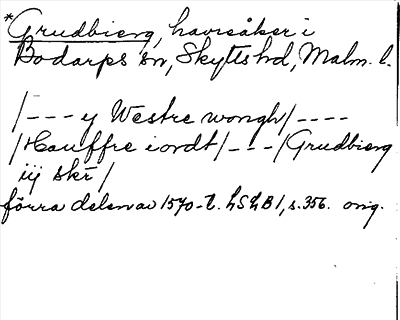 *Grudbierg, havreåker i
Bodarps sn, Skytts hd, Malm. l.
/--- y Westre wongh/----
/Hauffre iordt/---/Grudbierg
iij skr/
förra delen av 1570-t. LSHB1, s. 356. orig.